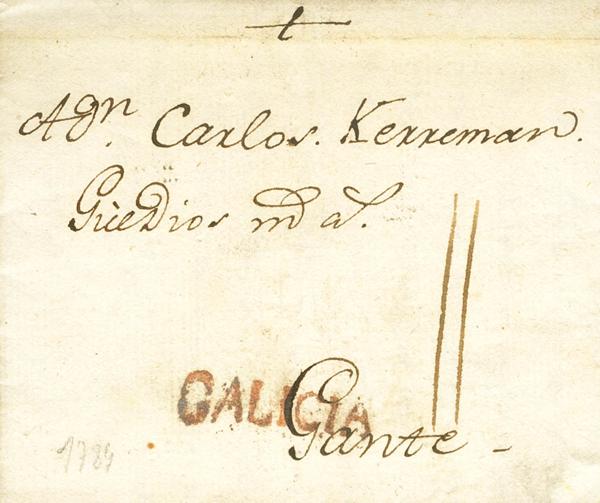 A Dn. Carlos. Kerreman.
Güe Dios md. as.
GALICIA
Gante -
1784